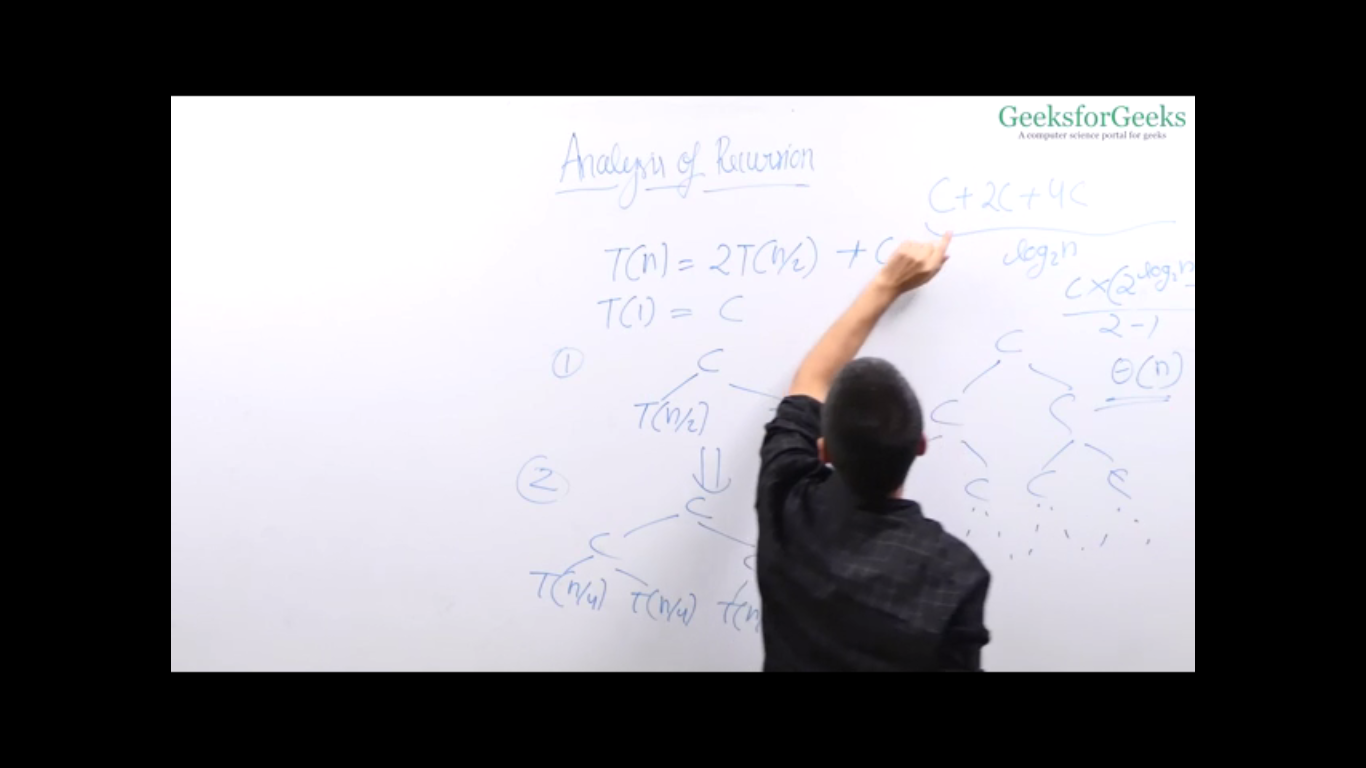 GeeksforGeeks
A computer science portal for geeks
Analysis of Recursion
C+2C+4C
log₂n
T(n) = 2T(n/2) + C
T(1) = C
C×(2^log₂n -
2-1
Θ(n)
①
C
T(n/2)
②
C
C
T(n/4) T(n/4)
C
C C
C C C